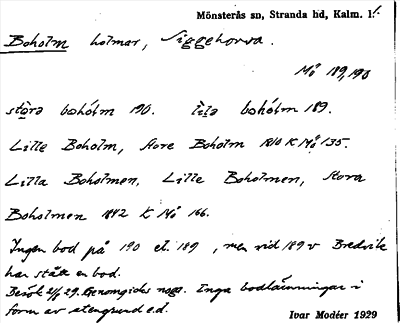 Mönsterås sn, Stranda hd, Kalm. l.
Boholm holmar, Siggehorva.
Mö 189, 190
störa bohólm 190. lila bohólm 189.
Lille Boholm, Store Boholm 1810 K Mö 135.
Lilla Boholmen, Lille Boholmen, Stora
Boholmen 1842 K Mö 166.
Ingen bod på 190 el. 189, men vid 189 v Bredvik
har stått en bod.
Besök 2/8 29. Genomgicks noga. Inga bodlämningar i
form av stengrund e.d.
Ivar Modéer 1929